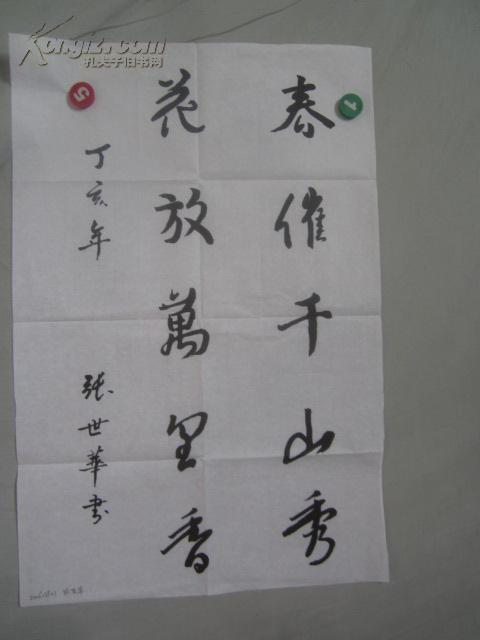 春催千山秀
花放萬里香
丁亥年
張世華书
Kongfz.com
孔夫子旧书网
1
5